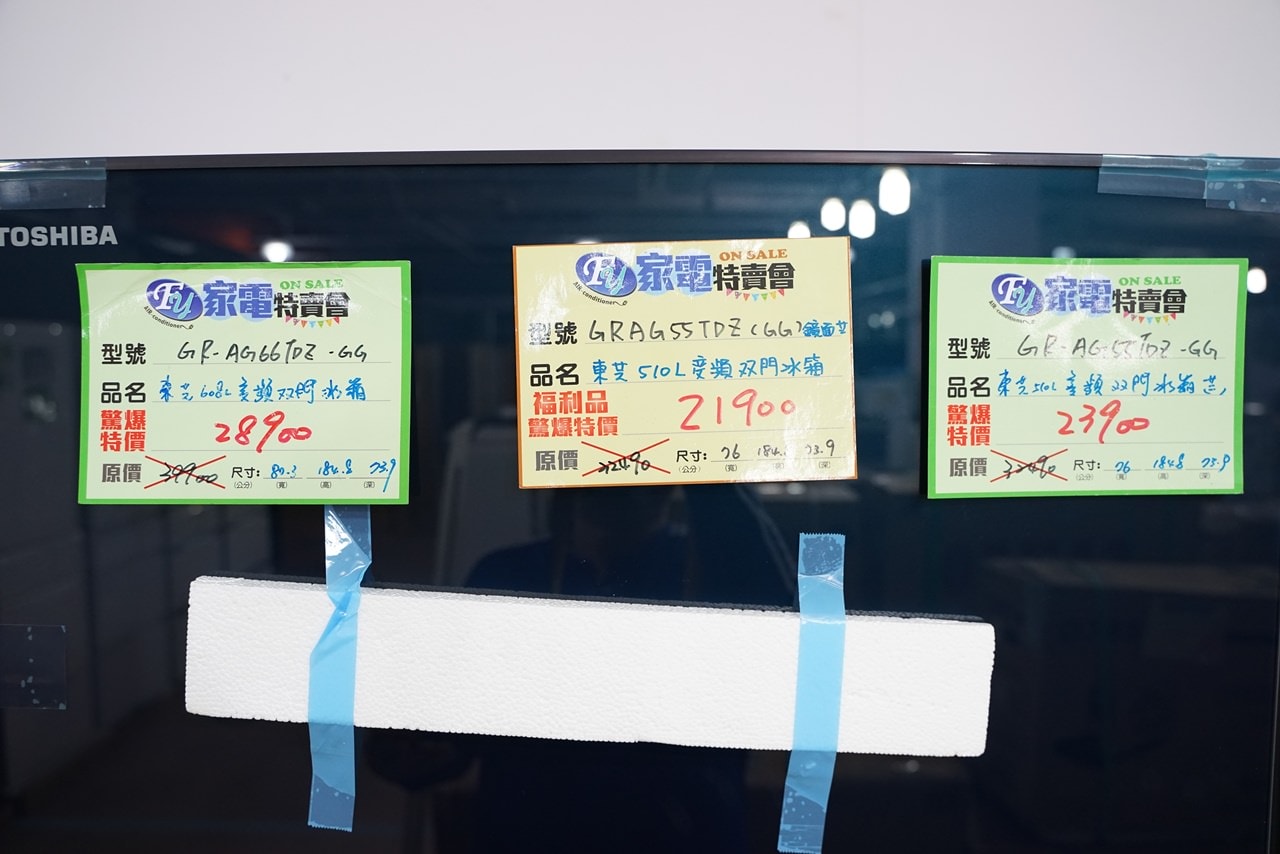 TOSHIBA
Fu 家電特賣會 ON SALE
Air-conditioner
型號 GR-AG66TDZ-GG
品名 東芝608L变頻双門冰箱
驚爆特價 28900
原價 39900 尺寸: 80.3 184.8 73.9
(公分) (寬) (高) (深)
Fu 家電特賣會 ON SALE
Air-conditioner
型號 GRAG55TDZ(GG)鏡面
品名 東芝510L变頻双門冰箱
福利品
驚爆特價 21900
原價 32490 尺寸: 76 184.8 73.9
(公分) (寬) (高) (深)
Fu 家電特賣會 ON SALE
Air-conditioner
型號 GR-AG55TDZ-GG
品名 東芝510L变頻双門冰箱
驚爆特價 23900
原價 32490 尺寸: 76 184.8 73.9
(公分) (寬) (高) (深)